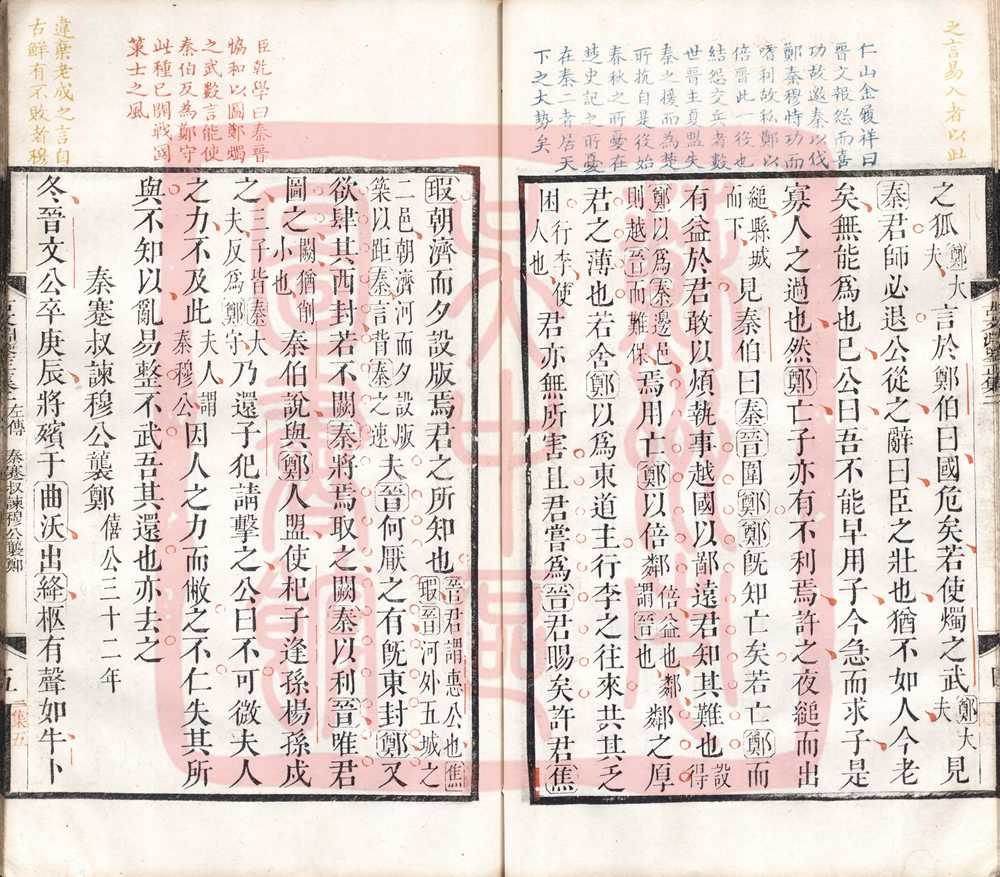 之言易入者以此
仁山金履祥曰
晉文報怨而喜
功故邀秦以伐
鄭秦穆恃功而
嗜利故私鄭以
倍晉此一役也
結怨交兵者數
世晉主夏盟失
秦之援而為楚
所抗自是役始
春秋之所憂在
楚史記之所憂
在秦二者居天
下之大勢矣
之狐鄭大夫言於鄭伯曰國危矣若使燭之武鄭大夫見
秦君師必退公從之辭曰臣之壯也猶不如人今老
矣無能爲也已公曰吾不能早用子今急而求子是
寡人之過也然鄭亡子亦有不利焉許之夜縋而出
縋縣城而下見秦伯曰秦晉圍鄭鄭旣知亡矣若亡鄭而
有益於君敢以煩執事越國以鄙遠君知其難也設得
鄭以爲秦邊邑則越晉而難保焉用亡鄭以倍鄰倍益也鄰謂晉也鄰之厚
君之薄也若舍鄭以爲東道主行李之往來共其乏
困行李使人也君亦無所害且君嘗爲晉君賜矣許君焦
臣乾學曰秦晉
協和以圖鄭燭
之武數言能使
秦伯反為鄭守
此種已開戰國
策士之風
違棄老成之言自
古鮮有不敗者穆
瑕朝濟而夕設版焉君之所知也晉君謂惠公也焦瑕晉河外五城之
二邑朝濟河而夕設版築以距秦言背秦之速夫晉何厭之有旣東封鄭又
欲肆其西封若不闕秦將焉取之闕秦以利晉唯君
圖之闕猶削小也秦伯說與鄭人盟使杞子逢孫楊孫戍
之三子皆秦大夫反爲鄭守乃還子犯請擊之公曰不可微夫人
之力不及此夫人謂秦穆公因人之力而㢢之不仁失其所
與不知以亂易整不武吾其還也亦去之
秦蹇叔諫穆公襲鄭僖公三十二年
冬晉文公卒庚辰將殯于曲沃出絳柩有聲如牛卜
左傳 秦蹇叔諫穆公襲鄭
五
集五